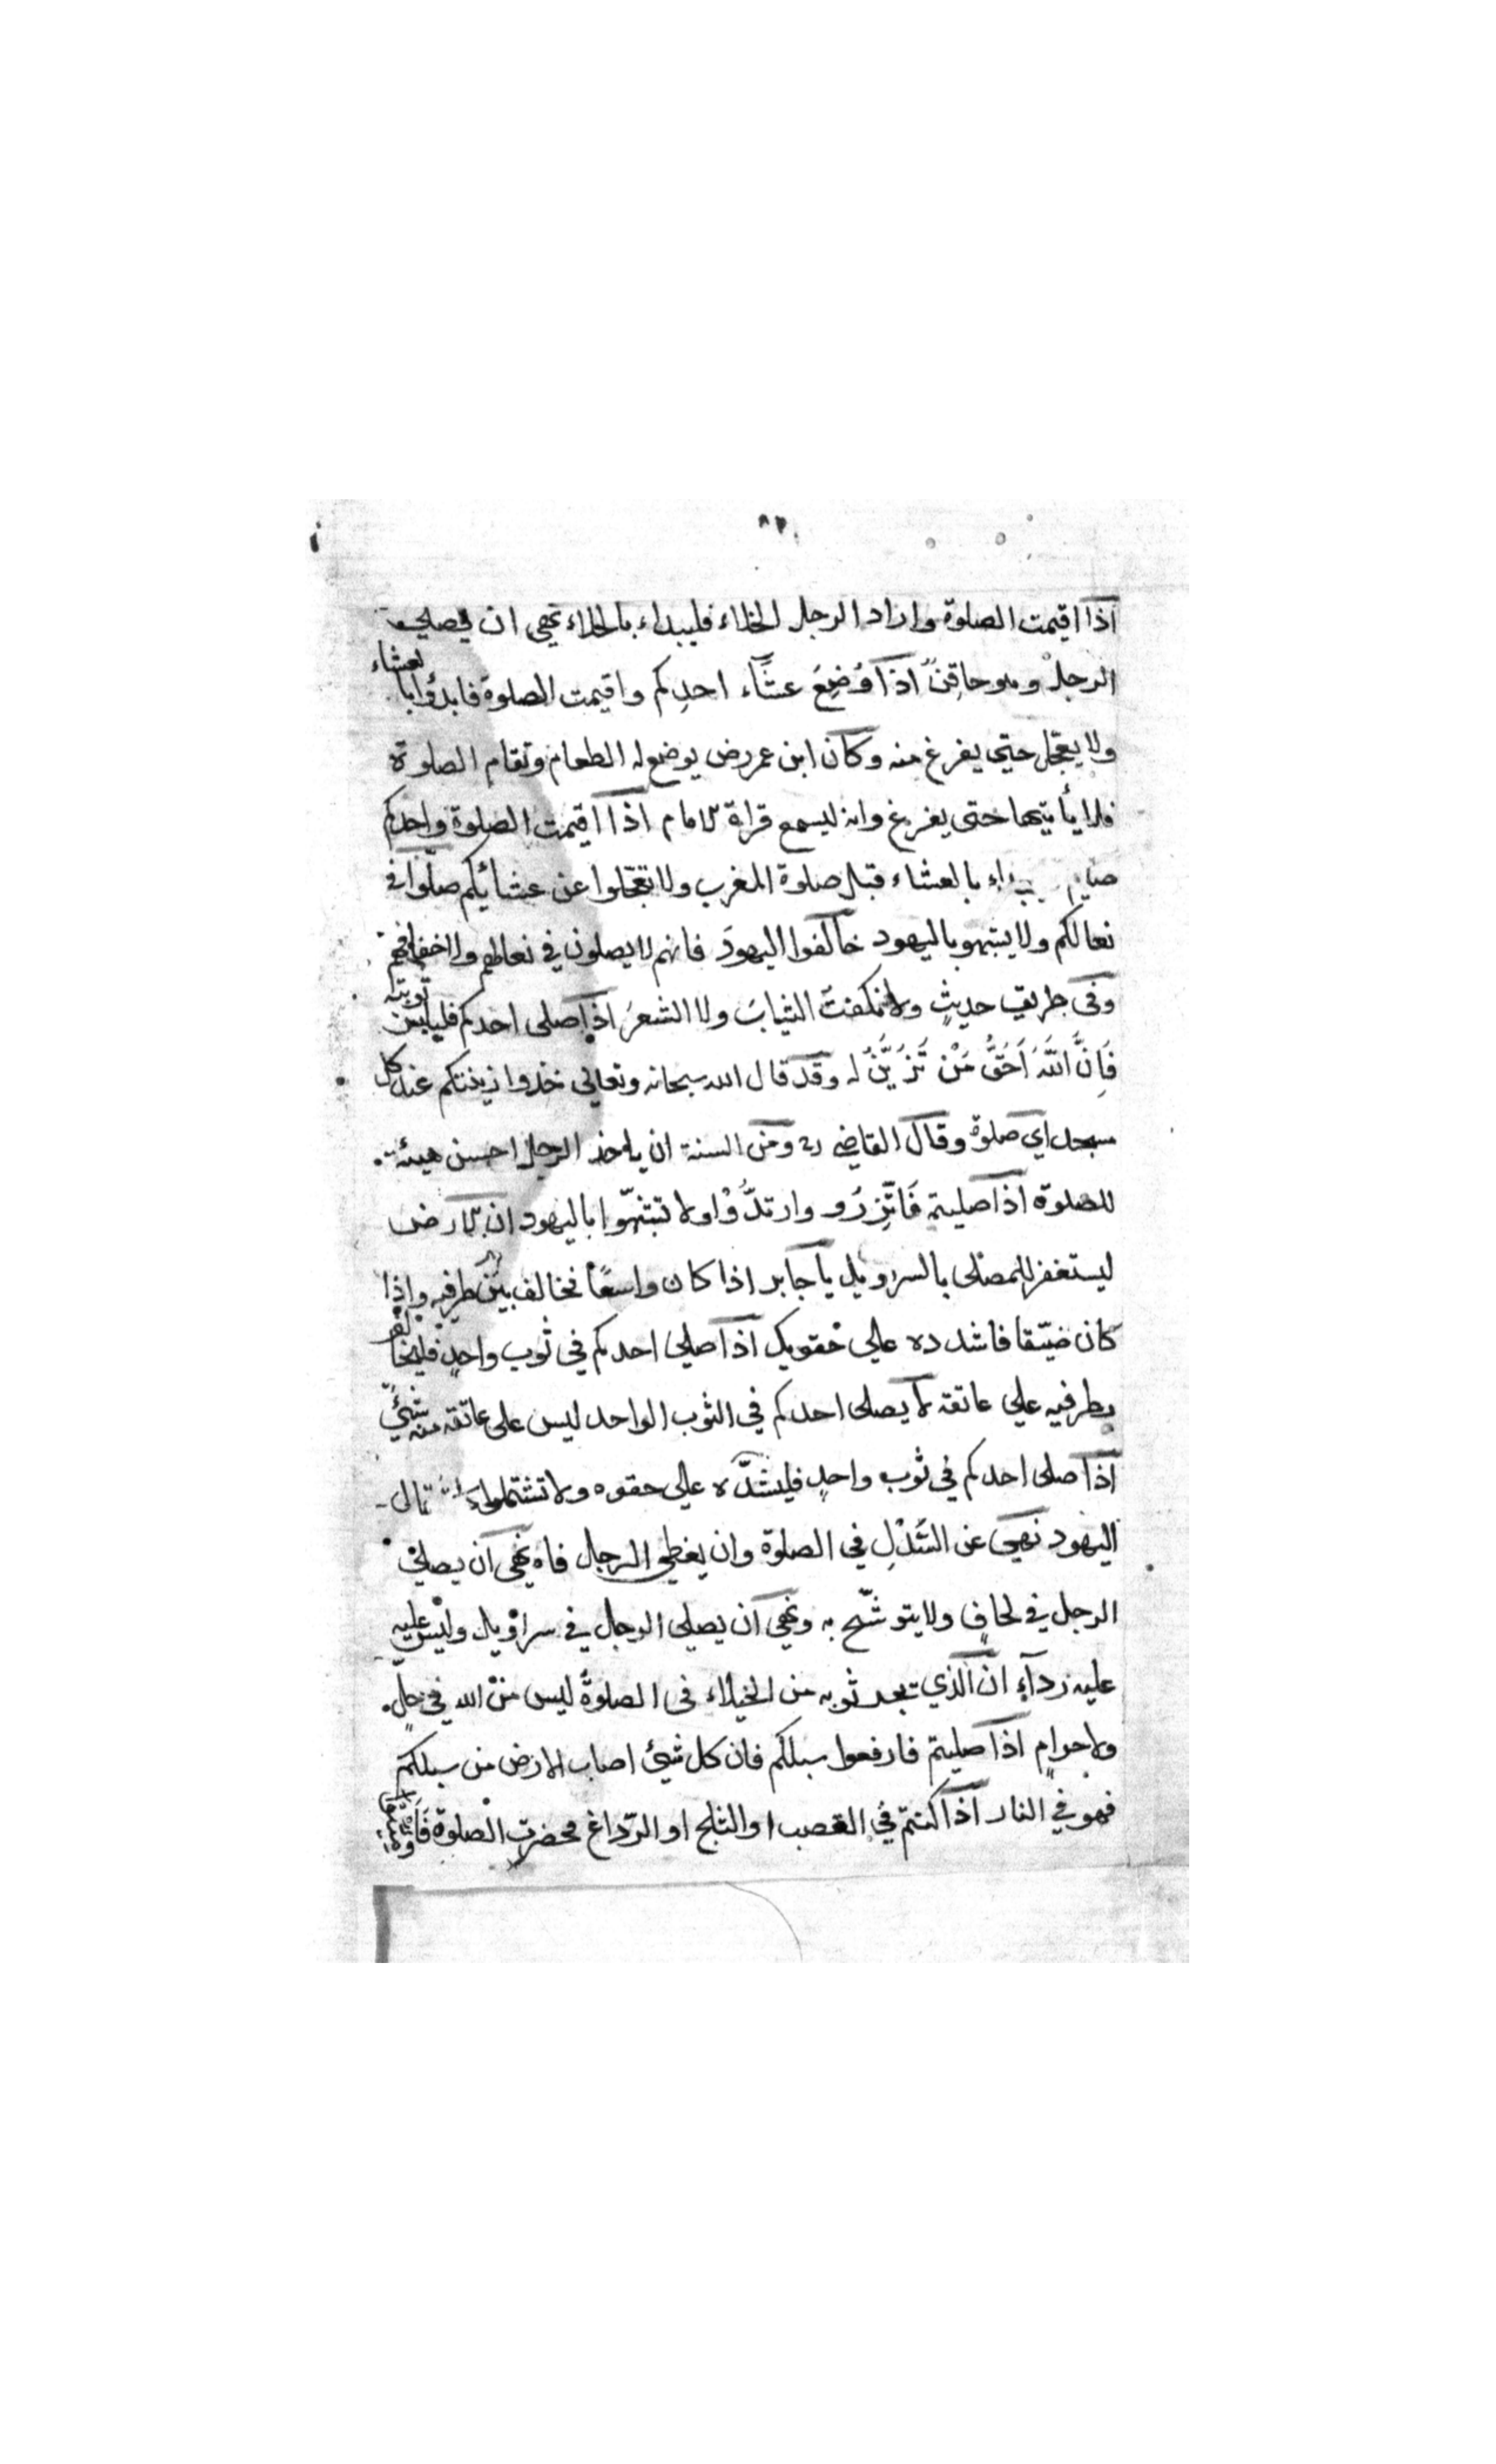 اذا اقيمت الصلوة واراد الرجل الخلاء فليبداء بالخلاء نهي ان يصلي
الرجل وهو حاقِنٌ اذا وُضِعَ عشَّاء احدِكم واقيمت الصلوة فابدؤابا لعشاء
ولا يعجّل حتي يفرغ منه وكان ابن عمر رض يوضع له الطعام وتقام الصلوة
فلا يأتيها حتى يفرغ وانه ليسمع قراة الامام اذا اقيمت الصلوة واحدكم
صايم بالعشاء قبل صلوة المغرب ولا تعجّلوا عن عشائكم صلّوا في
نعالكم ولا يشبهو باليهود خالفوا اليهودَ فانهم لا يصلون في نعالهم ولا خفافهم
وفى طريق حديثٍ ولا نكفتَ الثيابَ ولا الشعرَ اذا صلى احدكم فليلبس ثوبيه
فَاِنَّ اللَّهَ اَحَقُّ مَنْ تَزَيَّنُ له وقد قال الله سبحانه وتعالي خذوا زينتكم عند كل
مسجد اي صلوة وقال القاضي رح ومن السنة ان ياخذ الرجل احسن هيئة
للصلوة اذا صليتم فَاتَّزِرُو وارتدُّوْا ولا تشبّهوا باليهود ان الارض
ليستغفر للمصلى بالسراويل يا جابر اذا كان واسعًا فخالف بين طرفيه واذا
كان ضيّقا فاشدده علي حقويك اذا صلى احدكم في ثوب واحدٍ فليخالف
بطرفيه علي عاتقه لا يصلى احدكم في الثوب الواحد ليس على عاتقه منه شئٌ
اذا صلى احدكم في ثوب واحدٍ فليشدّه علي حقوه ولا تشتملوا
اليهود نهي عن السَّدْلِ في الصلوة وان يغطي الرجل فاه نهي ان يصلي
الرجل في لحافٍ ولا يتوشّح به ونهي ان يصلي الرجل في سراويل وليس عليه
عليه رداءٍ ان الذي يجر ثوبه من الخيلاء فى الصلوة ليس من الله في حلّ
ولا حرامٍ اذا صليتم فارفعوا سبلكم فان كل شيئ اصاب الارض من سبلكم
فهو في النار اذا كنتم في القصب او الثلج او الرّداغ فحضرت الصلوة